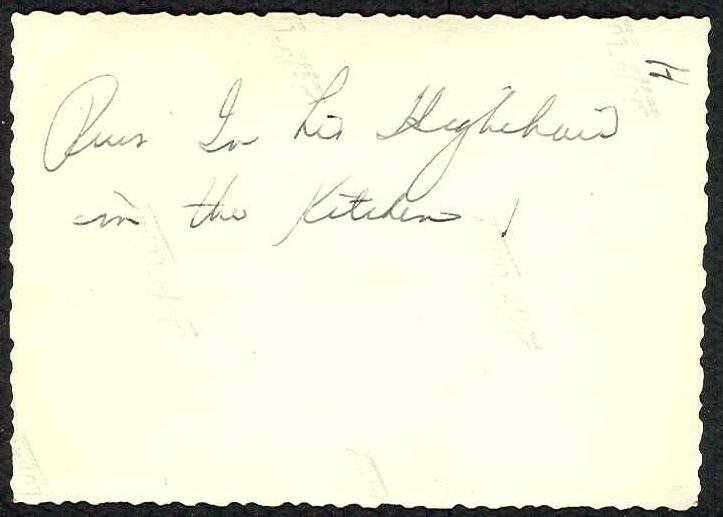 In his Highchair
in the Kitchen!
H